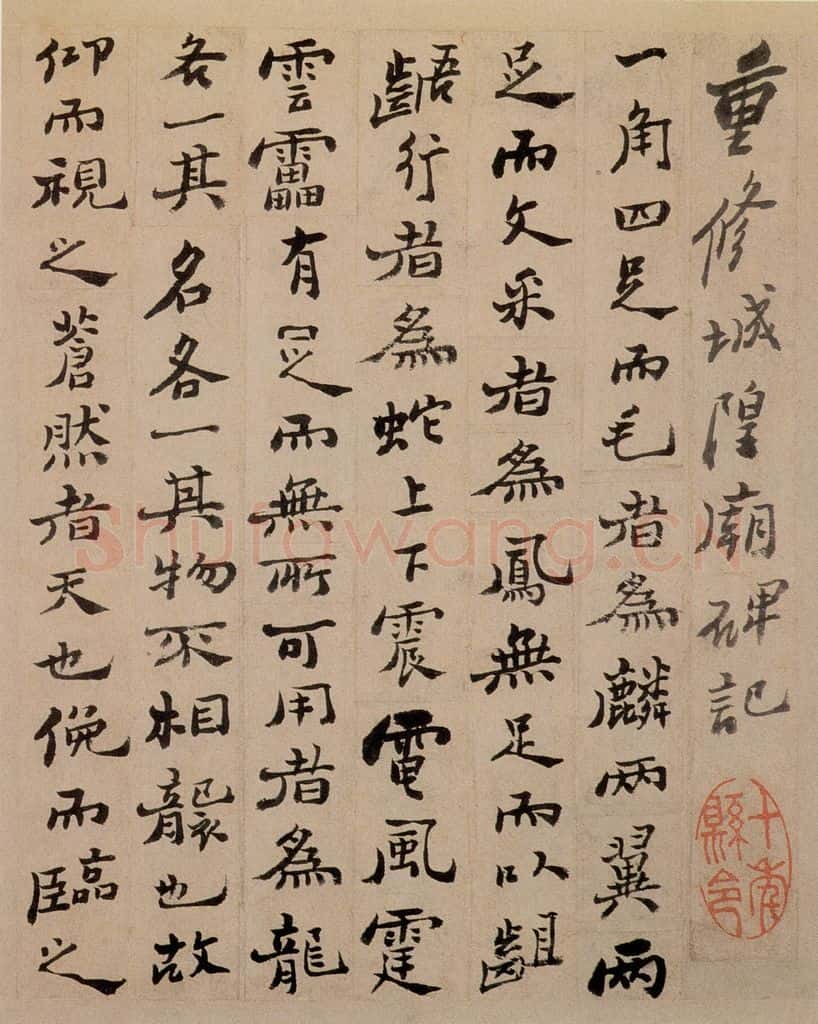 重修城隍廟碑記
十年縣令
一角四足而毛者為麟兩翼兩
足而文采者為鳳無足而以齟
齬行者為蛇上下震電風霆
雲靁有足而無所可用者為龍
各一其名各一其物不相襲也故
仰而視之蒼然者天也俛而臨之
shufawang.cn